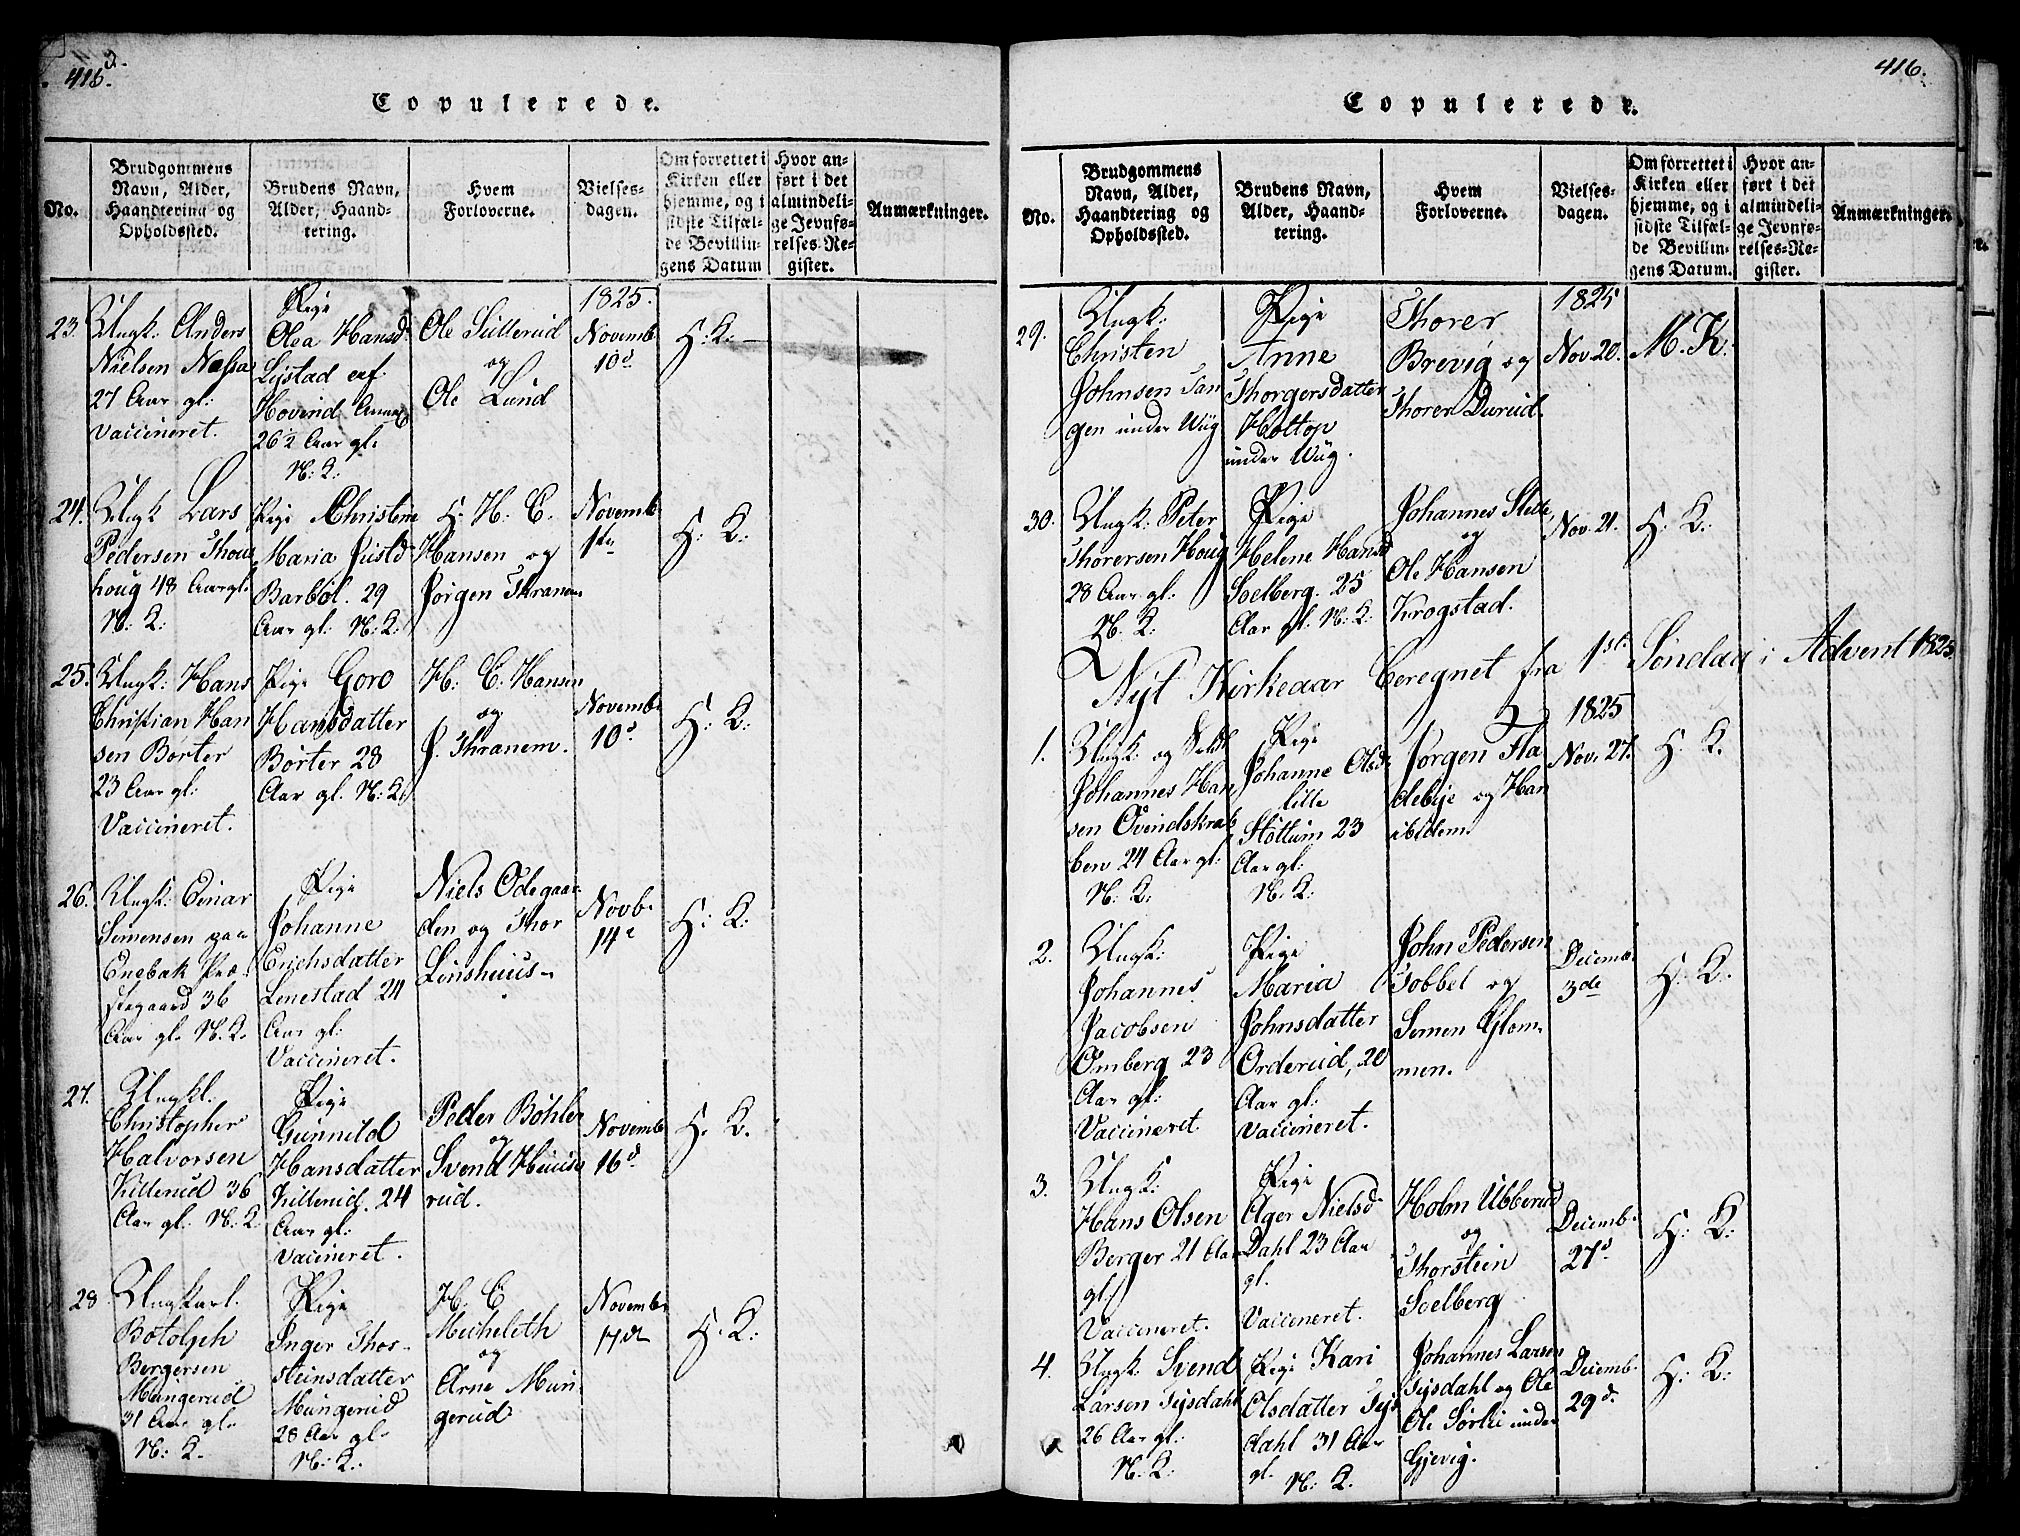 415.
Copulerede.
No.
Brudgommens
Navn, Alder,
Haandtering og
Opholdssted.
Brudens Navn,
Alder, Haand-
tering.
Hvem
Forloverne.
Vielses-
dagen.
Om forrettet i
Kirken eller
hjemme, og i
sidste Tilfæl-
de Bevillin-
gens Datum
Hvor an-
ført i det
almindeli-
ge Jevnfø-
relses-Re-
gister.
Anmærkninger.
23.
Ungk. Anders
Nielsen
27 Aar gl:
Vaccineret.
Pige
Olea Hansd.
Lystad
Hovind
26½ Aar gl.
N: K:
Ole Sütterud
og
Ole Lünd
1825.
Novemb
10d
H: K:
24.
Ungk Lars
Pedersen Thou
houg 48 Aar gl.
N: K:
Pige Christine
Maria Justd
Barböl. 29
Aar gl: N: K:
H. H. C.
Hansen og
Jörgen Thranem
Novemb
H: K:
25.
Ungk: Hans
Christian Han
sen Börter
23 Aar gl:
Vaccineret.
Pige Goro
Hansdatter
Börter 28
Aar gl. N: K:
H: C: Hansen
og
J. Thranem.
Novemb.
10d
H: K:
26.
Ungk: Einar
Simensen paa
Enebak Præ-
stegaard 36
Aar gl. N. K.
Pige
Johanne
Erichsdatter
Lenestad 24
Aar gl:
Vaccineret.
Niels Ödegaar-
den og Thor
Linshuus-
Novb.
14e
H: K:
27.
Ungkl.
Christopher
Halvorsen
Killerud 36
Aar gl: N: K
Pige
Günnild
Hansdatter
Killerud. 24
Aar gl:
Vaccineret.
Peder Böhler
og
Svend Huuse
rud.
Novemb
16d
H. K.
28
Ungkarl.
Botolph
Bergersen
Müngerud
31 Aar gl.
N: K.
Pige
Inger Thor-
steinsdatter
Müngerud
28 Aar gl.
N: K:
H. C
Micheleth
og
Arne Mün-
gerud
Novemb.
17de
H. K:
416.
Copulerede.
No.
Brudgommens
Navn, Alder,
Haandtering og
Opholdssted.
Brudens Navn,
Alder, Haand-
tering.
Hvem
Forloverne.
Vielses-
dagen.
Om forrettet i
Kirken eller
hjemme, og i
sidste Tilfæl-
de Bevillin-
gens Datum.
Hvor an-
ført i det
almindeli-
ge Jevnfø-
relses-Re-
gister.
Anmærkninger.
29.
Ungk:
Christen
Johnsen Tan
gen under Wüg
Pige
Anne
Thorgersdatter
Holtop
under Wüg.
Thorer
Brevig og
Thorer Durud.
1825
Nov 20.
M. K.
30.
Ungk: Peter
Thorersen Houg
28 Aar gl.
N. K:
Pige
Helene Hansd
Solberg. 25
Aar gl. N: K:
Johannes
og
Ole Hansen
Krogstad.
Nov. 21.
H. K:
Nyt Kirkeaar beregnet fra 1ste Söndag i Advent 1825.
1.
Ungk: og
Johannes Han
sen Övindskrab
ben 24 Aar gl:
N. K:
Pige
Johanne Olsd.
lille
Stöttum 23
Aar gl:
N. K:
Jörgen Fla
debye og Han
1825
Nov. 27.
H. K.
2.
Ungk:
Johannes
Jacobsen
Omberg 23
Aar gl:
Vaccineret
Pige
Maria
Johnsdatter
Orderud, 20
Aar gl:
Vaccineret.
John Pedersen
Tobbel og
Simen Glom-
men.
Decemb.
3de
H. K.
3.
Ungk:
Hans Olsen
Berger 21 Aar
gl.
Vaccineret.
Pige
Ager Nielsd
Dahl 23 Aar
gl.
Vaccineret.
Holm Ubberud
og
Thorstein
Solberg
Decemb.
27d
H. K:
4.
Ungk: Svend
Larsen Tysdahl
26 Aar gl:
N: K:
Pige Kari
Olsdatter Tys
dahl 31 Aar
gl. N: K.
Johannes Larsen
Tysdahl og Ole
Ole Sörlie under
Gjevig.
Decemb.
29d.
H: K: